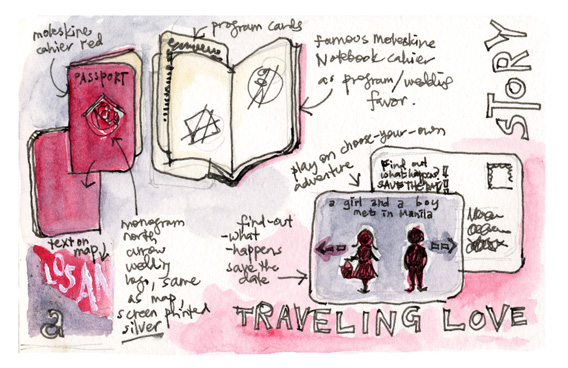 moleskine
cahier red
PASSPORT
program cards
famous moleskine
Notebook cahier
as program/wedding
favor.
STORY
play on choose-your-own
adventure
Find out
what happens?
SAVE THE DATE!
a girl and a boy
met in Manila
text on
map
LOS AN
a
monogram
north
arrow
wedding
logo, same
as map,
screen printed
silver
-find-out
-what
-happens
save the
date
TRAVELING LOVE